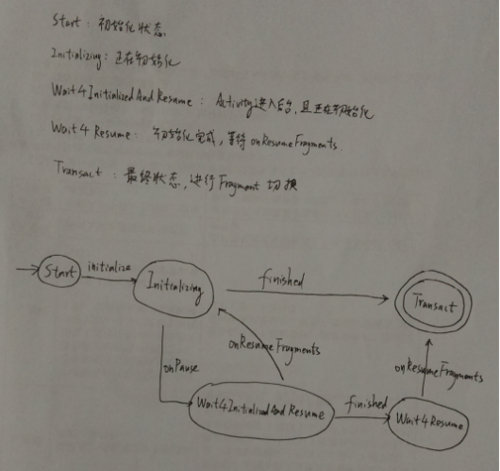 Start：初始化状态
Initializing：正在初始化
Wait4InitializedAndResume：Activity进入后台，且正在初始化
Wait4Resume：初始化完成，等待onResumeFragments.
Transact：最终状态，进行Fragment切换
Start
initialize
Initializing
finished
Transact
onResumeFragments
onResumeFragments
onPause
Wait4InitializedAndResume
finished
Wait4Resume